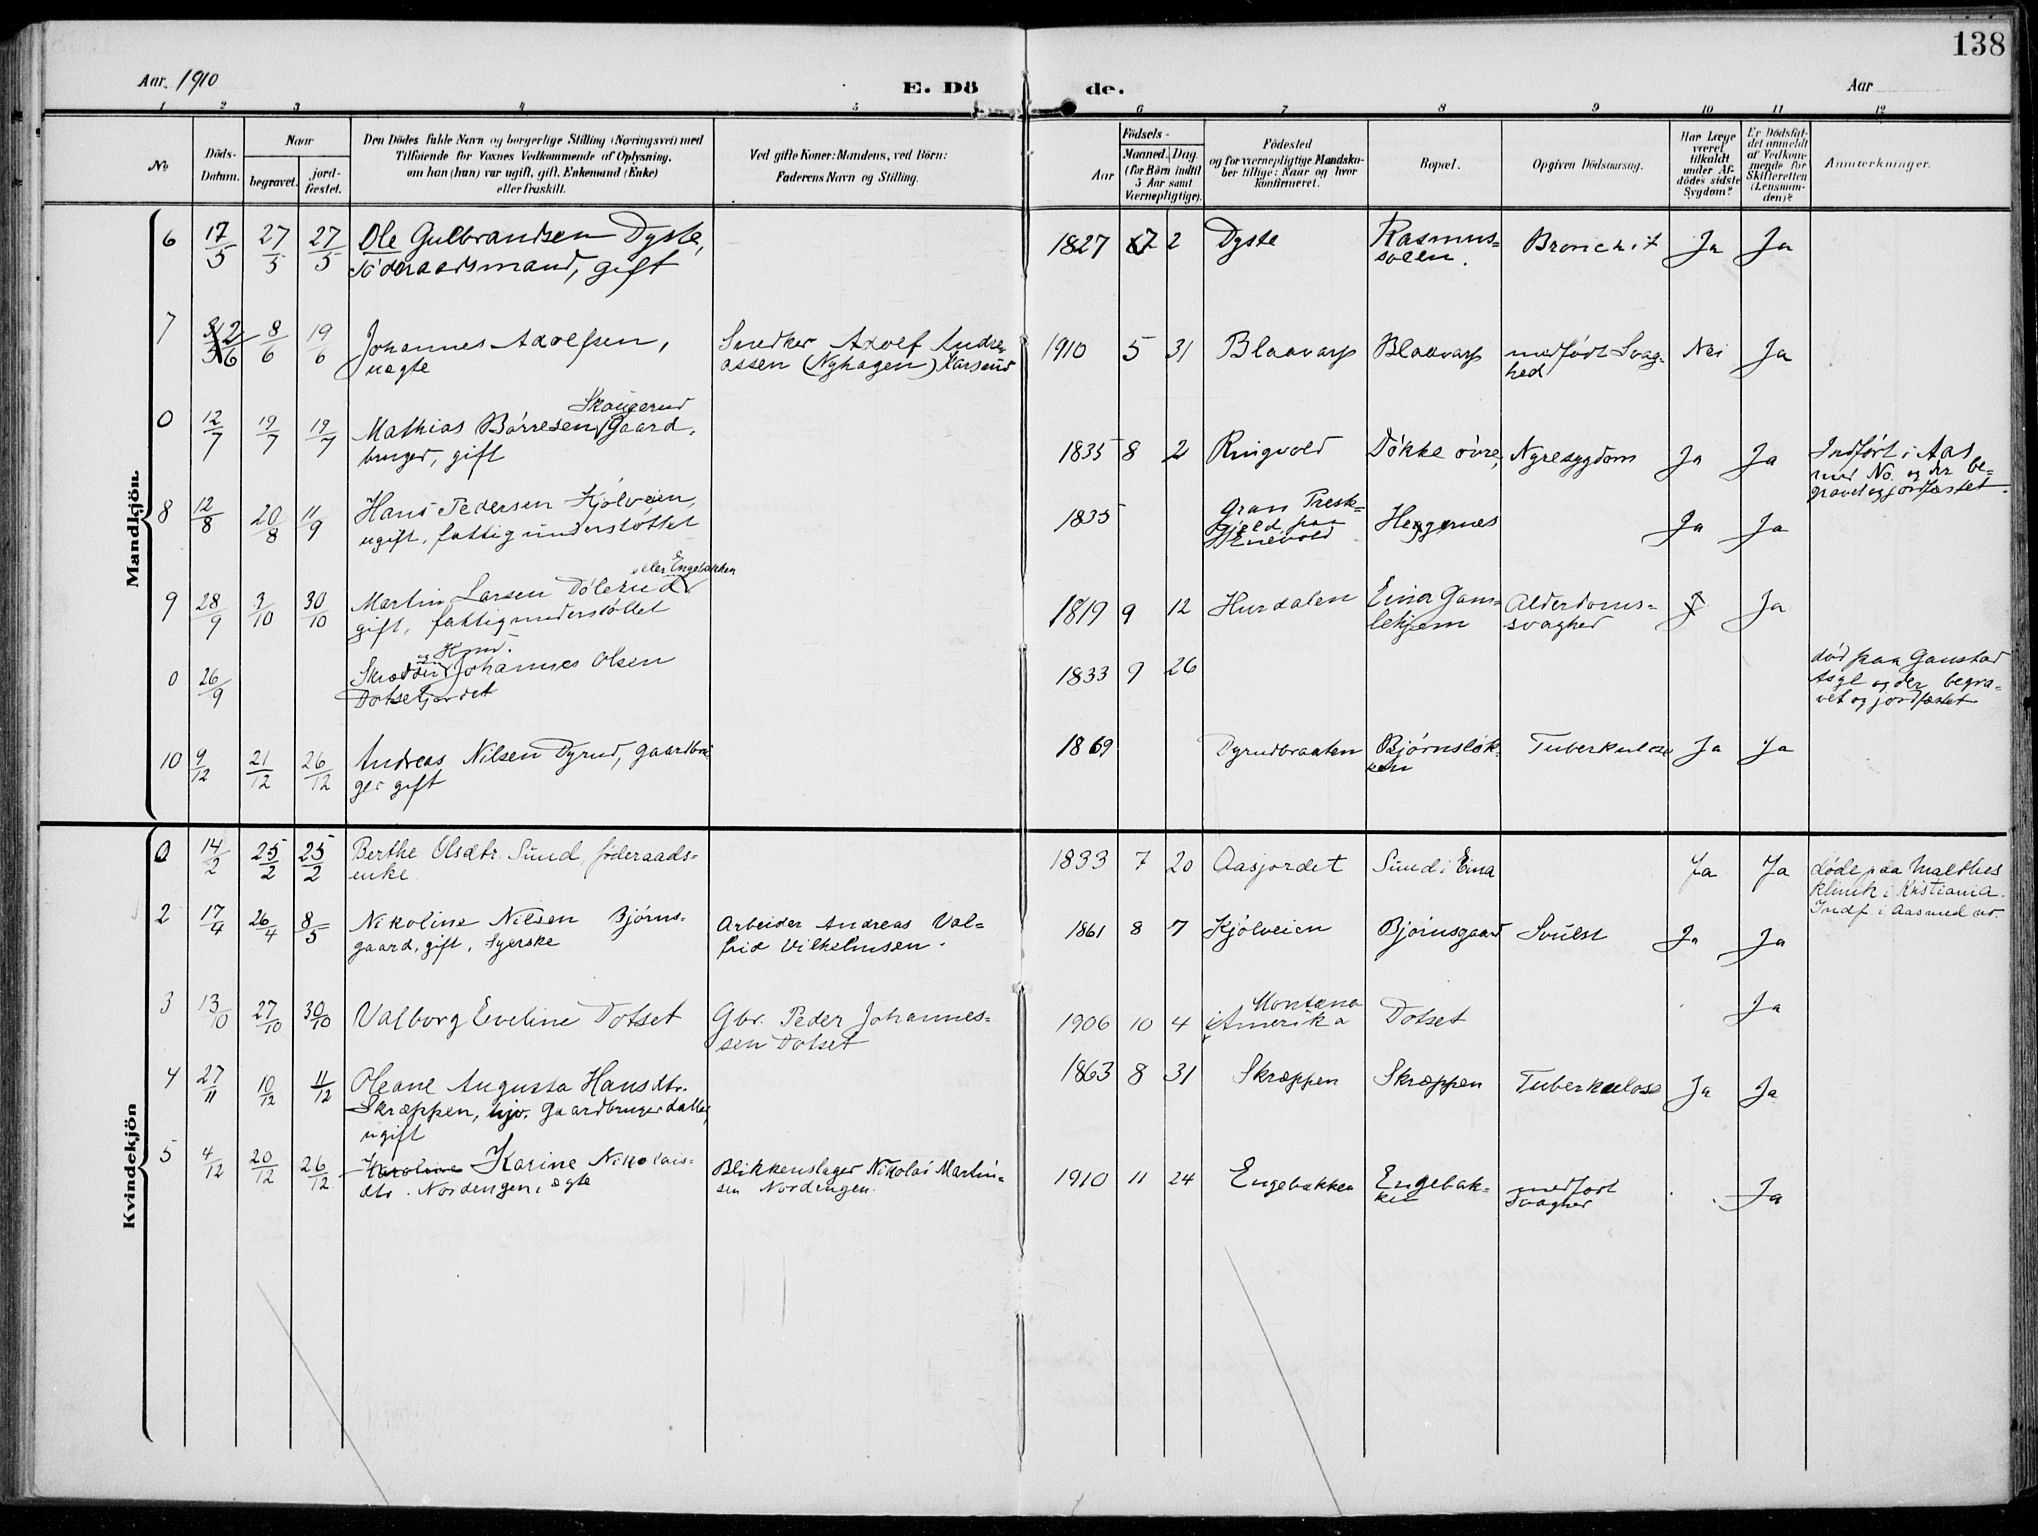 138
Aar 1910
E. Dö de.
Aar
1 2 3 4 5 6 7 8 9 10 11 12
No
Döds-Datum.
Naar
begravet.
jord-fæstet.
Den Dödes fulde Navn og borgerlige Stilling (Næringsvei) med
Tilföiende for Voxnes Vedkommende af Oplysning,
om han (hun) var ugift, gift, Enkemand (Enke)
eller fraskilt.
Ved gifte Koner: Mandens, ved Börn:
Faderens Navn og Stilling.
Födsels-
Aar
Maaned. Dag.
(for Börn indtil
5 Aar samt
Værnepligtige).
Födested
og for værnepligtige Mandska-
ber tillige: Naar og hvor
konfirmeret.
Bopæl.
Opgiven Dödsaarsag.
Har Læge
været
tilkaldt
under Af-
dödes sidste
Sygdom?
Er Dödsfal-
det anmeldt
af Vedkom-
mende for
Skifteretten
(Lensman-
den)?
Anmærkninger.
Mandkjön.
6 17/5 27/5 27/5 Ole Gulbrandsen Dyste,
föderaadsmand, gift
1827 2 Dyste Rasmus-
solen. Bronchit Ja Ja
7 2/6 8/6 19/6 Johannes Adolfsen,
uægte
Snedker Adolf Andre-
assen (Nyhagen)
1910 5 31 Blaavarp Blaavarp medfødt Svag-
hed Nei Ja
0 12/7 19/7 19/7 Mathias Børresen Skaugerud Gaard-
bruger, gift
1835 8 2 Ringvold Døkke øvre, Nyresygdom Ja Ja Indført i Aas
med No. og der be-
gravet og jordfæstet.
8 12/8 20/8 11/9 Hans Pedersen Kjølveien,
ugift, fattigunderstøttet
1835 Gran Prest-
gjeld paa
Hennes Ja Ja
9 28/9 3/10 30/10 Martin Larsen Dølerud eller Engebakken
gift, fattigunderstøttet
1819 9 12 Hurdalen Eina Gam-
lehjem Alderdoms-
svaghed Ja
0 26/9 Skrædder og Hmd. Johannes Olsen
Dotsetjordet
1833 9 26
død paa Gaustad
Asyl og der begra-
vet og jordfæstet
10 9/12 21/12 26/12 Andreas Nilsen Dyrud, gaardbru-
ger gift
1869 Dyrudbraaten Bjørnsløk-
ken Tuberkulose Ja Ja
Kvindekjön
0 14/2 25/2 25/2 Berthe Olsdtr. Sund, føderaads-
enke.
1833 7 20 Aasjordet Sund i Eina Ja Ja døde paa Malthes
klinik i Kristiania.
Indf i Aas med no.
2 17/4 26/4 8/5 Nikoline Nilsen Bjørns-
gaard, gift, Syerske
Arbeider Andreas Val-
frid Vilhelmsen.
1861 8 7 Kjølveien Bjørnsgaard Svulst Ja Ja
3 13/10 27/10 30/10 Valborg Eveline Dotset
Gbr. Peder Johannes-
sen Dotset
1906 10 4 Montana
i Amerika Dotset Ja
4 27/11 10/12 11/12 Oleane Augusta Hansdtr.
Skræppen, hjv. Gaardbrugerdatter,
ugift
1863 8 31 Skræppen Skræppen Tuberkulose Ja Ja
5 4/12 20/12 26/12 Karoline Karine Nikolais-
dtr. Nordengen, ægte
Blikkenslager Nikolai Martin-
sen Nordengen.
1910 11 24 Engebakken Engebak-
ken medfødt
Svaghed Ja